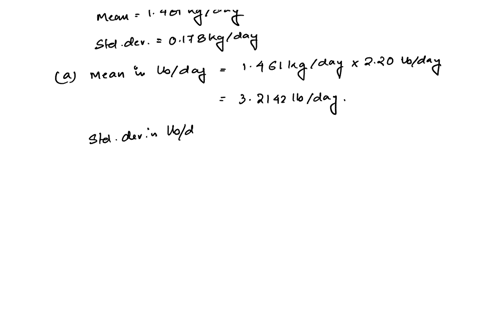 Mean = 1.461 kg/day
Std.dev. = 0.178 kg/day
(a) Mean in lb/day = 1.461 kg/day × 2.20 lb/day
= 3.2142 lb/day.
Std.dev.in lb/d